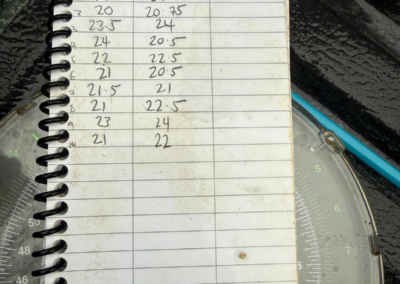 2 20 20.75
3 23.5 24
4 24 20.5
5 22 22.5
6 21 20.5
7 21.5 21
8 21 22.5
9 23 24
10 21 22
24
50
48
46